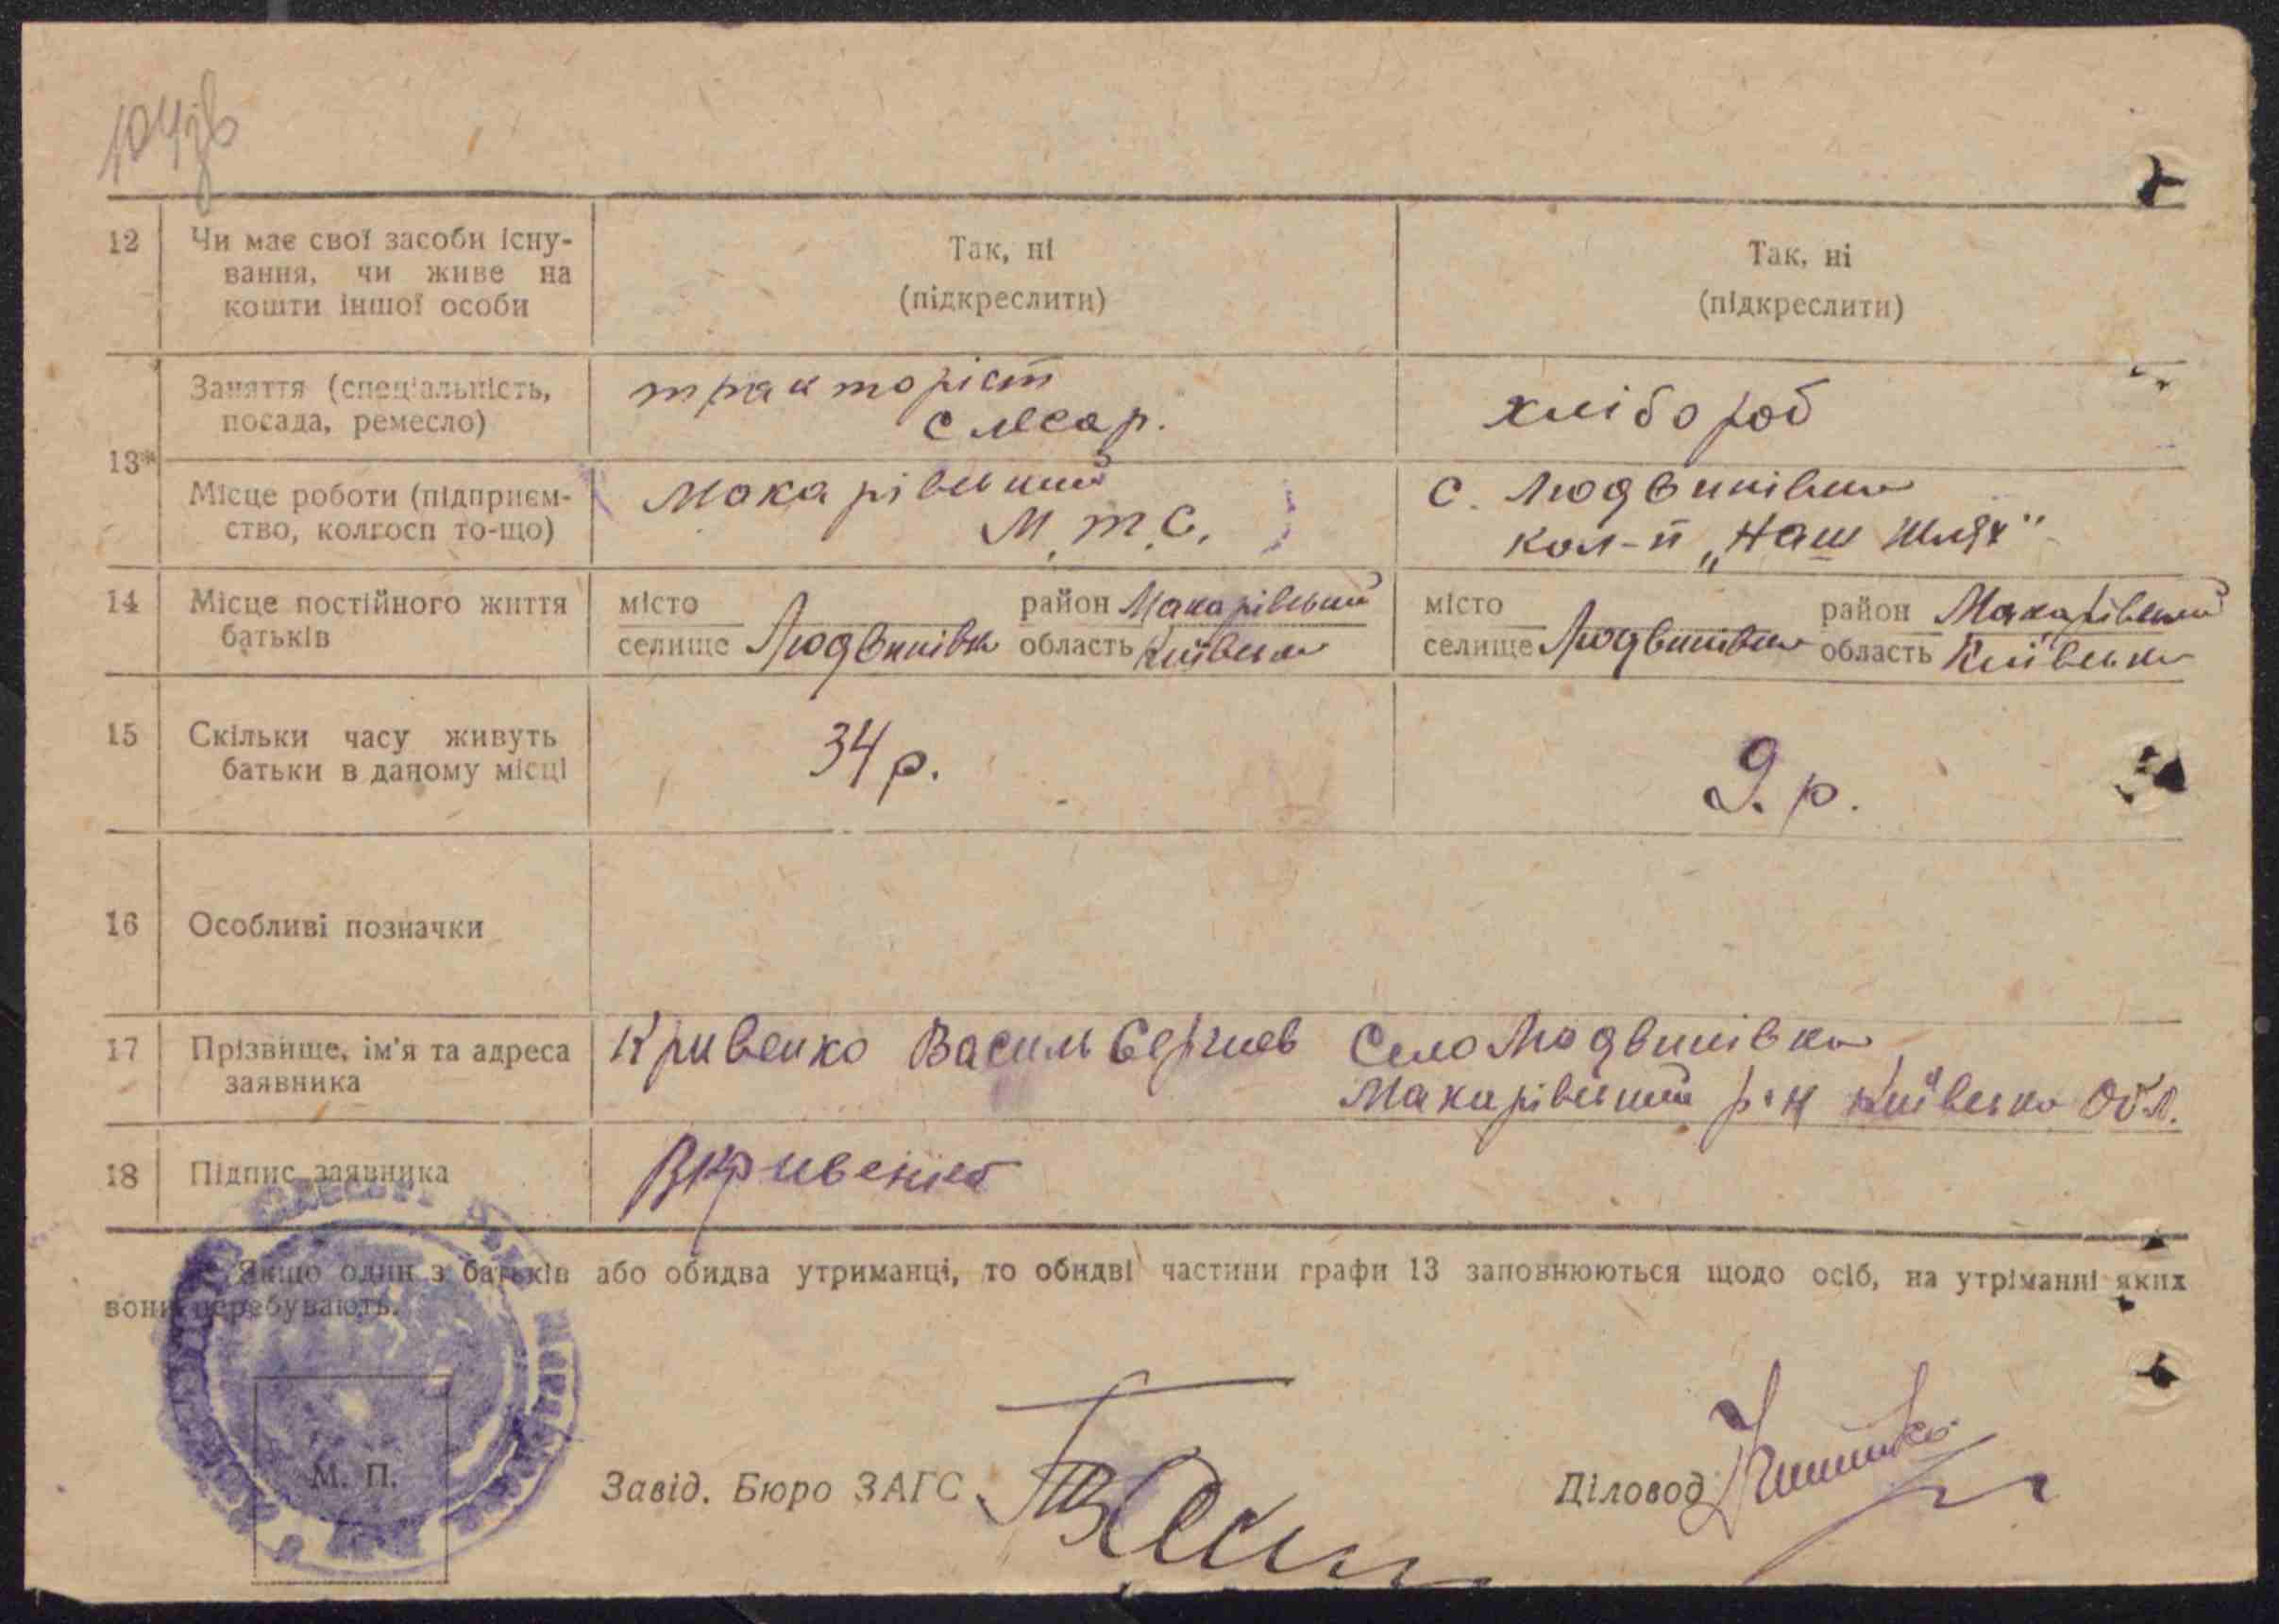 104зв
12 Чи має свої засоби існу- Так, ні Так, ні
вання, чи живе на (підкреслити) (підкреслити)
кошти іншої особи
13* Заняття (спеціальність, тракторіст хлібороб
посада, ремесло) слюсар.
Місце роботи (підприєм- Макарівський с. Людвинівка
ство, колгосп то-що) М.Т.С. кол-п „Наш шлях"
14 Місце постійного життя місто район Макарівський місто район Макарівський
батьків селище Людвинівка область Київська селище Людвинівка область Київська
15 Скільки часу живуть 34 р. 9. р.
батьки в даному місці
16 Особливі позначки
17 Прізвище, ім'я та адреса Кривенко Василь Сергиев Село Людвинівка
заявника Макарівський р-н Київсько Обл.
18 Підпис заявника ВКривенко
Якщо один з батьків або обидва утриманці, то обидві частини графи 13 заповнюються щодо осіб, на утріманні яких
вони перебувають.
М. П.
Завід. Бюро ЗАГС Діловод